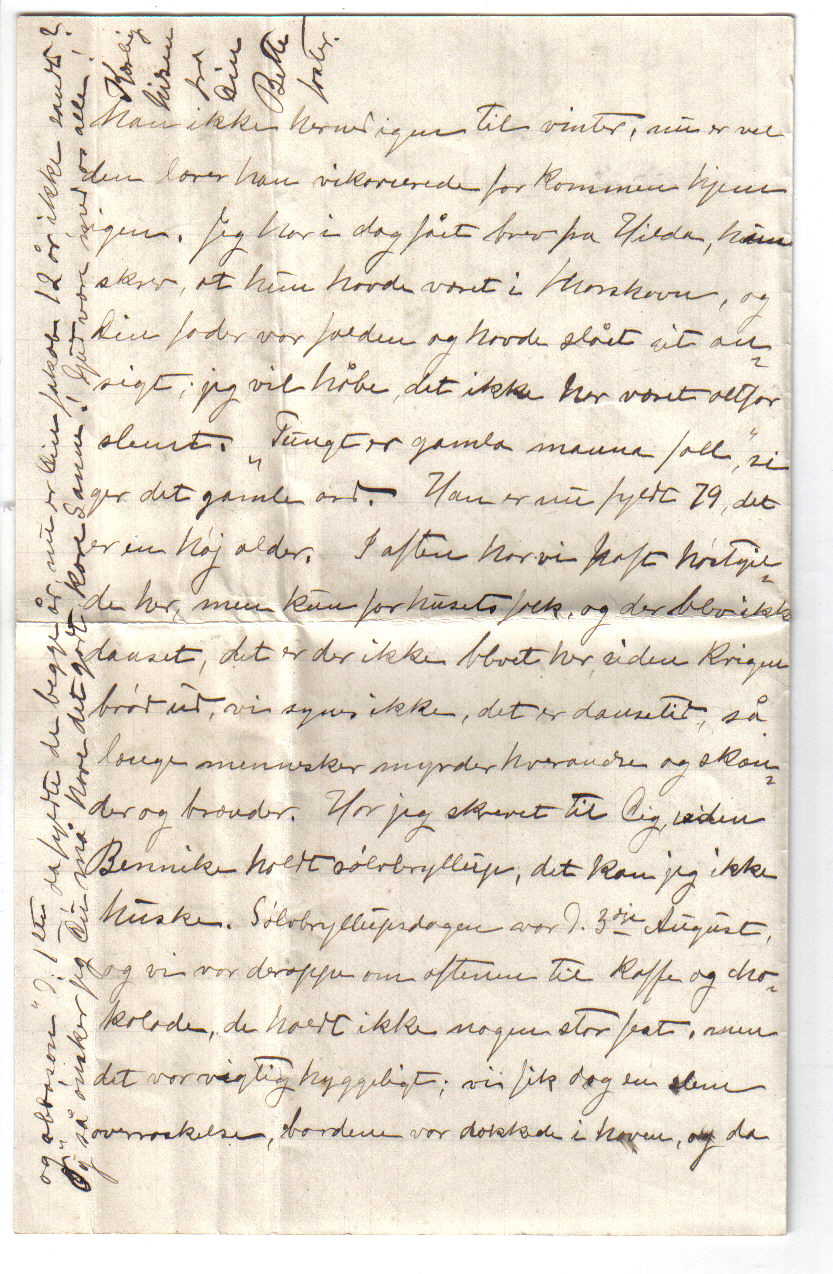 han ikke herned igen til vinter, nu er vel
den lærer han vikarierede for kommen hjem
igen. Jeg har i dag fået brev fra Hilda, hun
skrev, at hun havde været i Thorshavn, og
Din fader var falden og havde slået sit an-
sigt; jeg vil håbe, det ikke har været altfor
slemt. „Tungt er gamla manna fall", si
ger det gamle ord. Han er nu fyldt 79, det
er en høj alder. I aften har vi haft høstgil-
de her, men kun for husets folk, og der blev ikke
danset, det er der ikke blevet her, siden krigen
brød ud, vi synes ikke, det er dansetid, så
længe mennesker myrder hverandre og skæn-
der og brænder. Har jeg skrevet til Dig, siden
Bennike holdt sølvbryllup, det kan jeg ikke
huske. Sølvbryllupsdagen var d. 3dje August,
og vi var deroppe om aftenen til kaffe og cho-
kolade, de holdt ikke nogen stor fest, men
det var vigtig hyggeligt; vi fik dog en slem
overraskelse, bordene var dækkede i haven, og da
og d. 1ste da fyldte de begge år, nu er Din Jakob 12 år ikke sandt?
Og så ønsker jeg Du må have det godt kære Sanna! Gud være med os alle!
Kærlig
hilsen
fra
Din
Bette
faster.